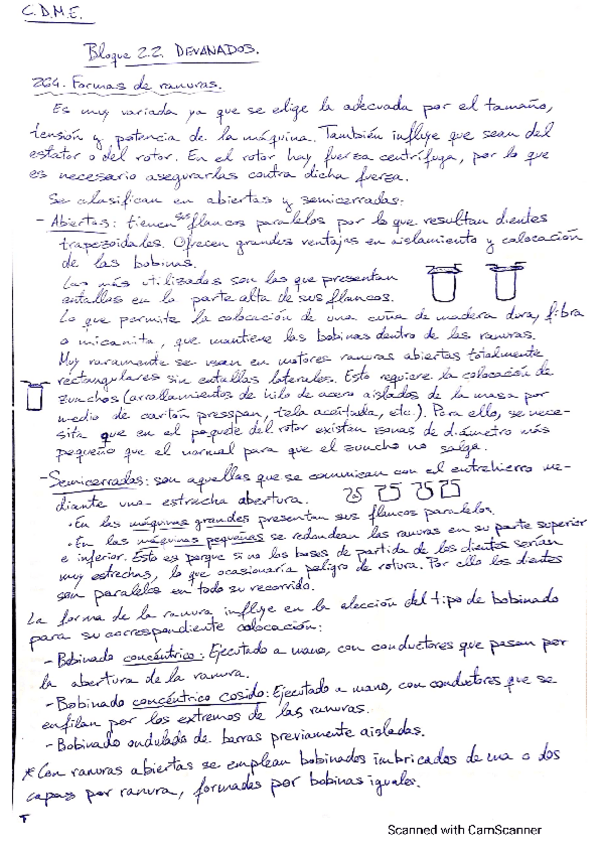 C.D.M.E.
Bloque 2.2. DEVANADOS.
264. Formas de ranuras.
Es muy variada ya que se elige la adecuada por el tamaño,
tensión y potencia de la máquina. También influye que sean del
estator o del rotor. En el rotor hay fuerza centrífuga, por lo que
es necesario asegurarlas contra dicha fuerza.
Se clasifican en abiertas y semicerradas:
- Abiertas: tienen sus flancos paralelos por lo que resultan dientes
trapezoidales. Ofrecen grandes ventajas en aislamiento y colocación
de las bobinas.
Las más utilizadas son las que presentan
entallas en la parte alta de sus flancos.
Lo que permite la colocación de una cuña de madera dura, fibra
o micanita, que mantiene las bobinas dentro de las ranuras.
Muy raramente se usan en motores ranuras abiertas totalmente
rectangulares sin entallas laterales. Esto requiere la colocación de
zunchos (arrollamientos de hilo de acero aislados de la masa por
medio de cartón presspan, tela aceitada, etc.). Para ello, se nece-
sita que en el paquete del rotor existan zonas de diámetro más
pequeño que el normal para que el zuncho no salga.
- Semicerradas: son aquellas que se comunican con el entrehierro me-
diante una estrecha abertura.
· En las máquinas grandes presentan sus flancos paralelos.
· En las máquinas pequeñas se redondean las ranuras en su parte superior
e inferior. Esto es porque si no las bases de partida de los dientes serían
muy estrechas, lo que ocasionaría peligro de rotura. Por ello los dientes
son paralelos en todo su recorrido.
La forma de la ranura influye en la elección del tipo de bobinado
para su correspondiente colocación:
- Bobinado concéntrico: Ejecutado a mano, con conductores que pasan por
la abertura de la ranura.
- Bobinado concéntrico cosido: Ejecutado a mano, con conductores que se
enfilan por los extremos de las ranuras.
- Bobinado ondulado de barras previamente aisladas.
* Con ranuras abiertas se emplean bobinados imbricados de una o dos
capas por ranura, formados por bobinas iguales.
Scanned with CamScanner